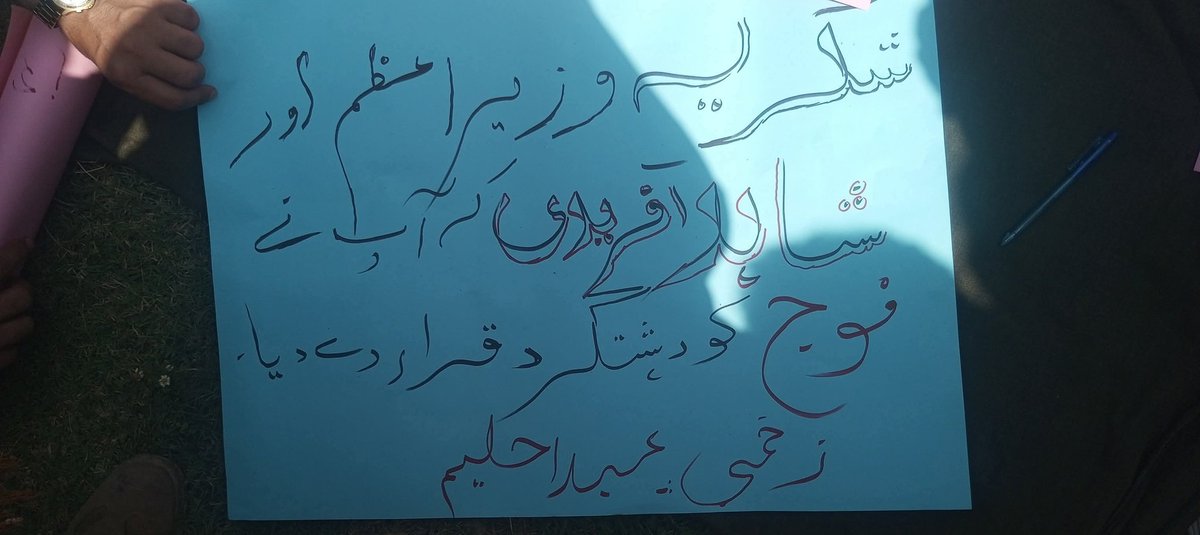 شکریہ وزیر اعظم اور
شاہد آفریدی کہ آپ نے
فوج کو دہشتگرد قرار دے دیا۔
زخمی عبدا حلیم